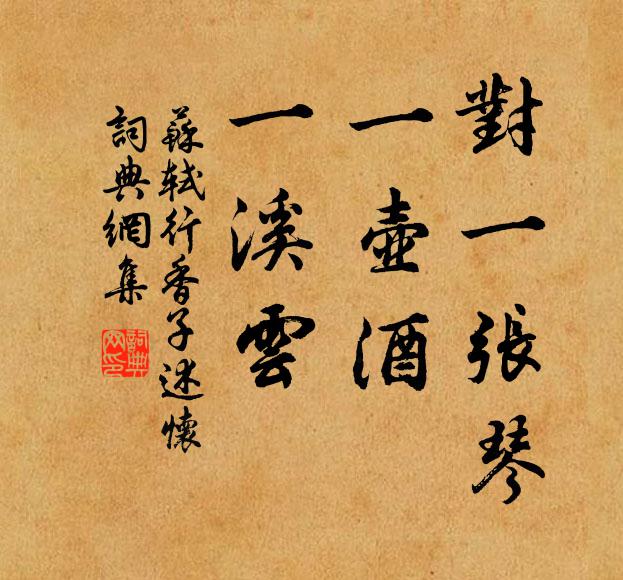 對一張琴
一壺酒
一溪雲
蘇軾行香子述懷
詞典網集
詞典网印